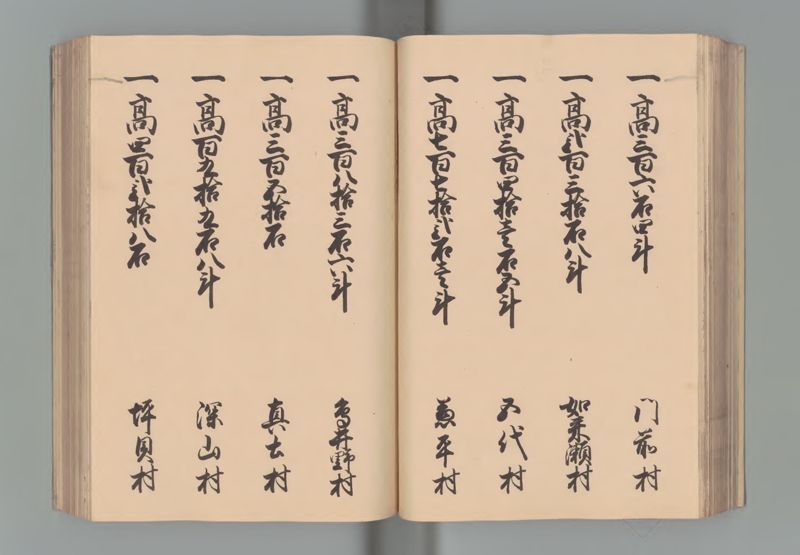 一高三百六石四斗 門前村
一高弐百三拾石八斗 如来瀬村
一高三百四拾壱石五斗 五代村
一高七百七拾弐石壱斗 兼平村
一高三百八拾三石六斗 鳥井野村
一高三百五拾石 真土村
一高百九拾九石八斗 深山村
一高四百弐拾八石 坪貝村